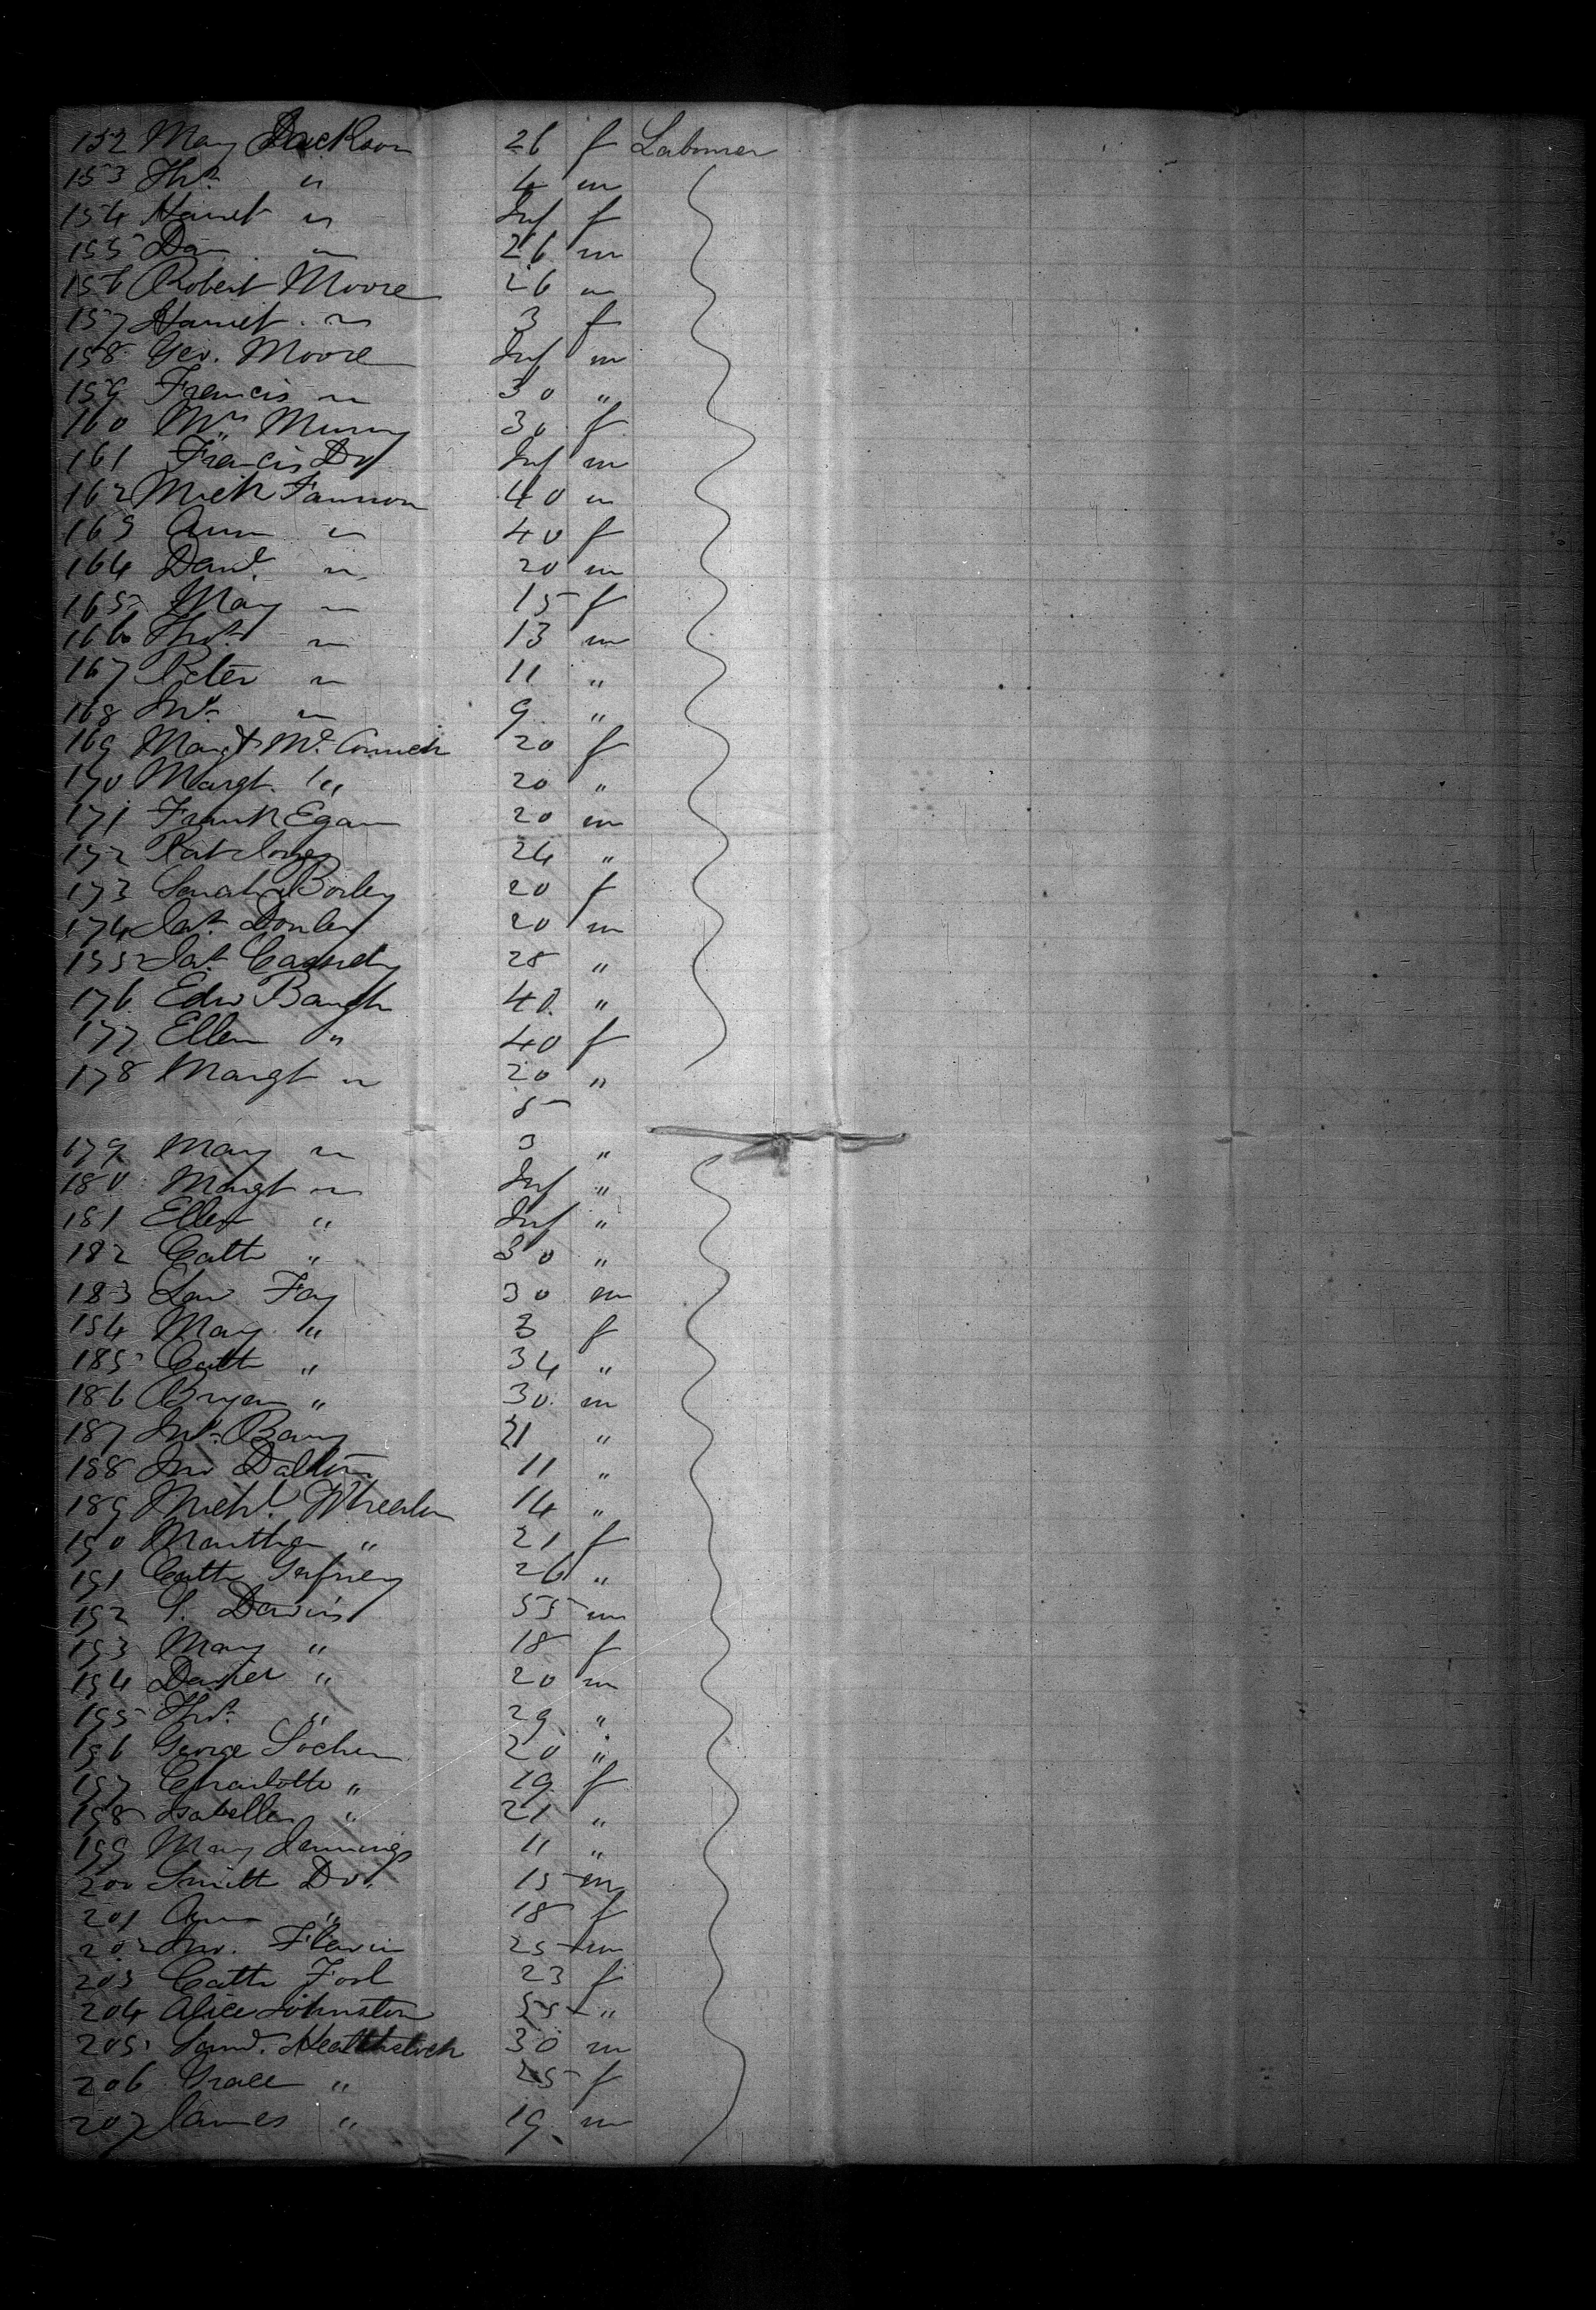 152 Mary Jackson 26 f Labourer
153 Thos. " 4 m
154 Harriet " Inf f
155 Dan " 26 m
156 Robert Moore 26 m
157 Harriet " 3 f
158 Geo. Moore Inf m
159 Francis " 30 "
160 Mrs Murry 30 f
161 Francis Do Inf m
162 Mich Fannon 40 m
163 Ann " 40 f
164 Danl. " 20 m
165 Mary " 15 f
166 Thos. " 13 m
167 Peter " 11 "
168 Jno. " 9 "
169 Margt 20 f
170 Margt. " 20 "
171 Frank Egan 20 m
172 Pat 24 "
173 Sarah 20 f
174 Jas. Donley 20 m
175 Jas. Cassidy 28 "
176 Edw Baugh 40 "
177 Ellen " 40 f
178 Margt " 20 "
5
179 Mary " 3 "
180 Margt " Inf "
181 Ellen " Inf "
182 Cath " 30 "
183 Law Fay 30 m
184 Mary " 3 f
185 Cath " 34 "
186 Bryan " 30 m
187 Jno. Barry 21 "
188 Jno Dalton 11 "
189 Michl. Wheelen 14 "
190 Martha " 21 f
191 Cath Gafney 26 "
192 S. Davis 55 m
193 Mary " 18 f
194 Daniel " 20 m
195 Thos. " 29 "
196 George 20 "
197 Charlotte " 19 f
198 Isabella " 21 "
199 Mary Jennings 11 "
200 Smith Do. 15 m
201 Ann " 18 f
202 Jno. Flavin 25 m
203 Cath 23 f
204 Alice Johnston 55 "
205 Saml. 30 m
206 Grace " 25 f
207 James " 19 m